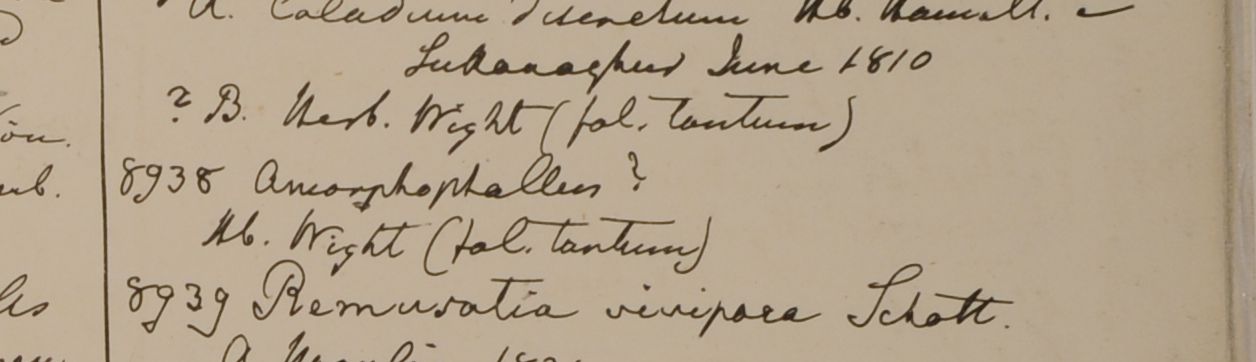 A. Caladium Hb. Hamilt.
June 1810
? B. Herb. Wight (fol. tantum)
8938 Amorphophallus ?
Hb. Wight (fol. tantum)
8939 Remusatia vivipara Schott.